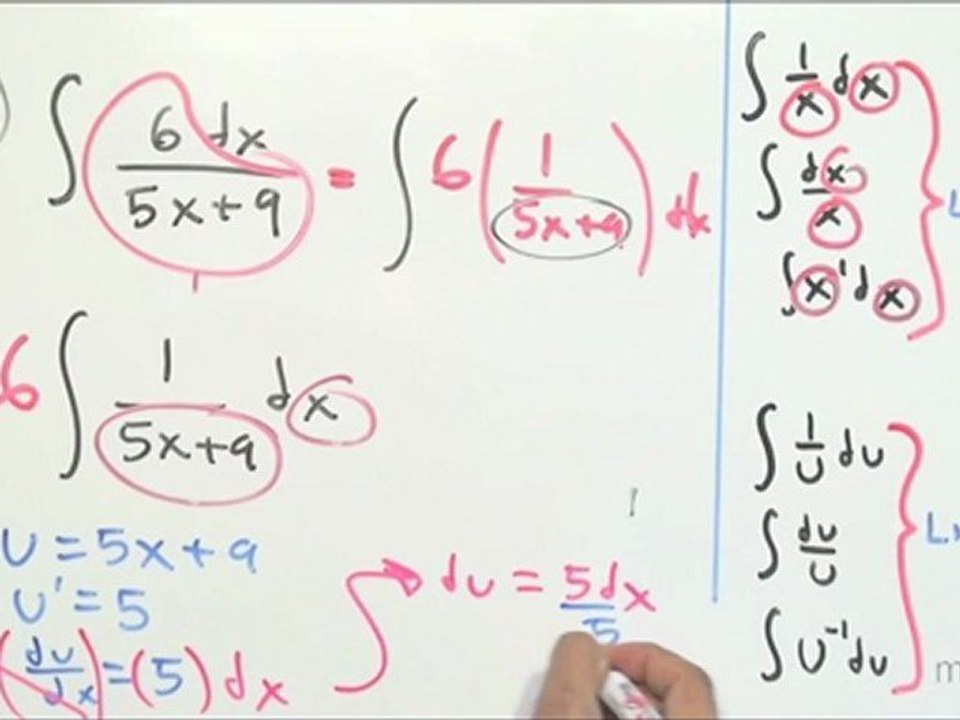 ∫ 6 dx / 5x+9 = ∫ 6 ( 1 / 5x+9 ) dx
6 ∫ 1 / 5x+9 dx
U = 5x+9
U' = 5
( du / dx ) = (5) dx
du = 5dx / 5
∫ 1/x dx
∫ dx/x
∫ x⁻¹ dx
L
∫ 1/U du
∫ du/U
∫ U⁻¹ du
L
m